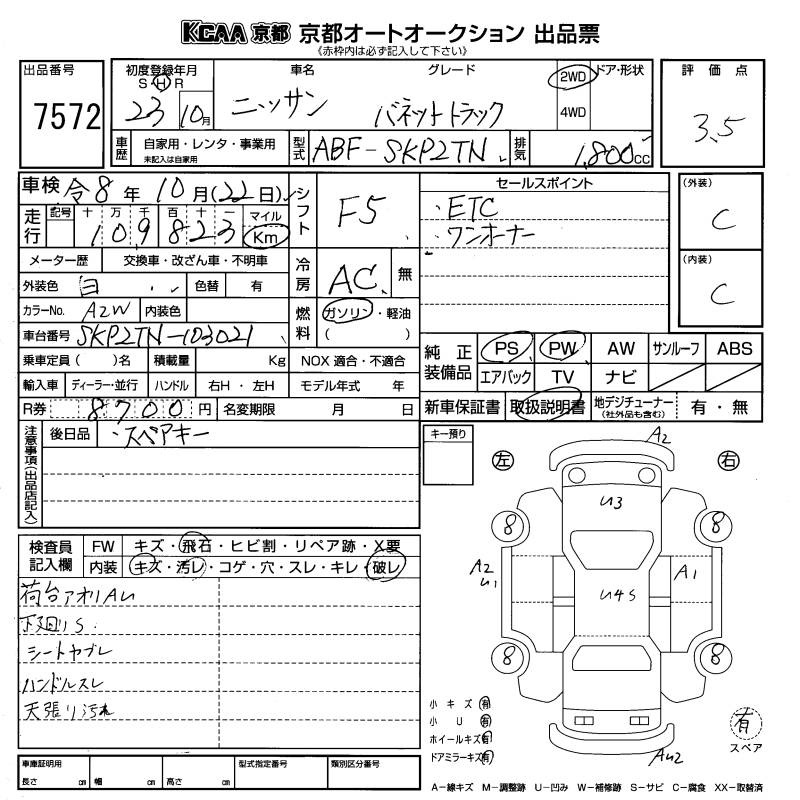 KCAA 京都 京都オートオークション 出品票
《赤枠内は必ず記入して下さい》
出品番号 初度登録年月 車名 グレード ドア・形状 評価点
S H R 2WD
7572 23 10月 ニッサン バネットトラック 4WD 3.5
車歴 自家用・レンタ・事業用 未記入は自家用 型式 ABF-SKP2TN 排気 1,800cc
車検 令8年10月(22日) シフト F5 セールスポイント (外装) C
走行 記号 十 万 千 百 十 一 マイル
109823 Km ・ETC
・ワンオーナー
メーター歴 交換車・改ざん車・不明車 冷房 AC 無 (内装) C
外装色 白 色替 有
カラーNo. A2W 内装色 燃料 ガソリン・軽油
( )
車台番号 SKP2TN-103021
乗車定員 ( )名 積載量 Kg NOX 適合・不適合 純正装備品 PS PW AW サンルーフ ABS
輸入車 ディーラー・並行 ハンドル 右H・左H モデル年式 年 エアバック TV ナビ
R券 8700円 名変期限 月 日 新車保証書 取扱説明書 地デジチューナー (社外品も含む) 有・無
注意事項(出品店記入) 後日品 ・スペアキー キー預り
左 右
A2
U3
8 8
A2
U1
A1
U4S
8 8
AU2
有
スペア
検査員記入欄 FW キズ・飛石・ヒビ割・リペア跡・X要
内装 キズ・汚レ・コゲ・穴・スレ・キレ・破レ
荷台アオリAU
下廻りS
シートヤブレ
ハンドルスレ
天張り汚れ
小キズ 有
小U 有
ホイールキズ 有
ドアミラーキズ 有
車庫証明用 型式指定番号 類別区分番号
長さ cm 幅 cm 高さ cm
A−線キズ M−調整跡 U−凹み W−補修跡 S−サビ C−腐食 XX−取替済